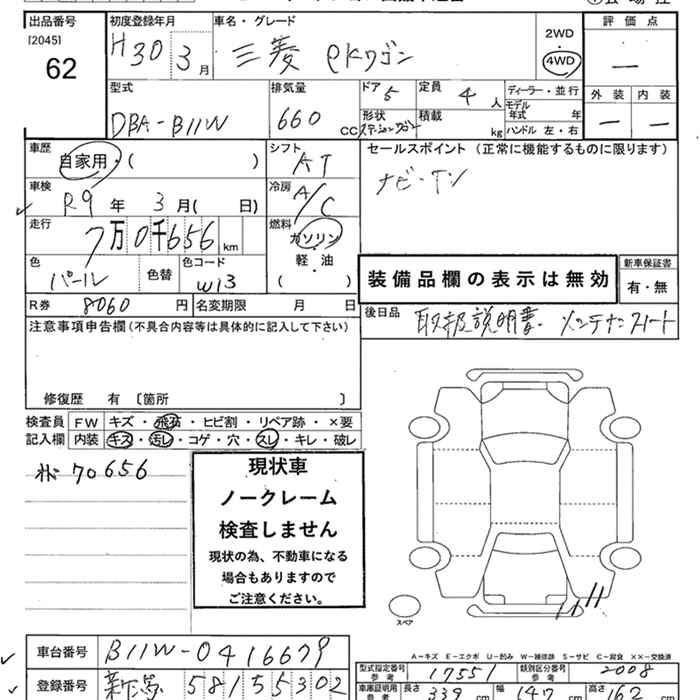 出品番号 初度登録年月 車名・グレード 評価点
[2045]
62
H30 3月 三菱 eKワゴン
2WD
4WD
型式 排気量 ドア 5 定員 4人 ディーラー・並行
モデル年式 年
外装 内装
DBA-B11W 660CC 形状 ステーションワゴン 積載 kg ハンドル 左・右
車歴 自家用・( ) シフト AT セールスポイント (正常に機能するものに限ります)
ナビ・TV
車検 R9年 3月( 日) 冷房 A/C
走行 7万0千656km 燃料 ガソリン
軽・油
( )
色 パール 色替 色コード W13
装備品欄の表示は無効
新車保証書
有・無
R券 8060円 名変期限 月 日
後日品 取扱説明書・メンテナンスノート
注意事項申告欄(不具合内容等は具体的に記入して下さい)
修復歴 有 〔箇所 〕
検査員 FW キズ・飛石・ヒビ割・リペア跡・×要
記入欄 内装 キズ・汚レ・コゲ・穴・スレ・キレ・破レ
70656
現状車
ノークレーム
検査しません
現状の為、不動車になる
場合もありますので
ご注意ください。
スペア
A-キズ E-エクボ U-凹み W-補修跡 S-サビ C-腐食 ××-交換済
車台番号 B11W-0416679
型式指定番号 参考 17551 類別区分番号 参考 2008
登録番号 58155302
車庫証明用 参考 長さ 339cm 幅 147cm 高さ 162cm